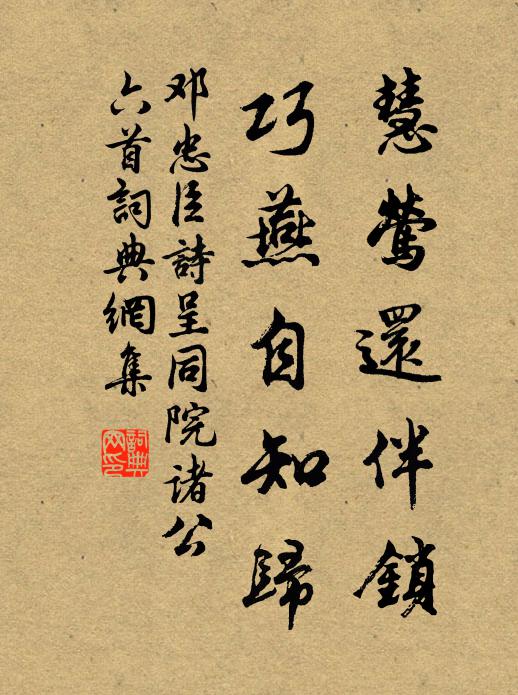 慧鶯還伴鎖
巧燕自知歸
邓忠臣詩呈同院诸公
六首詞典網集
詞典
网印